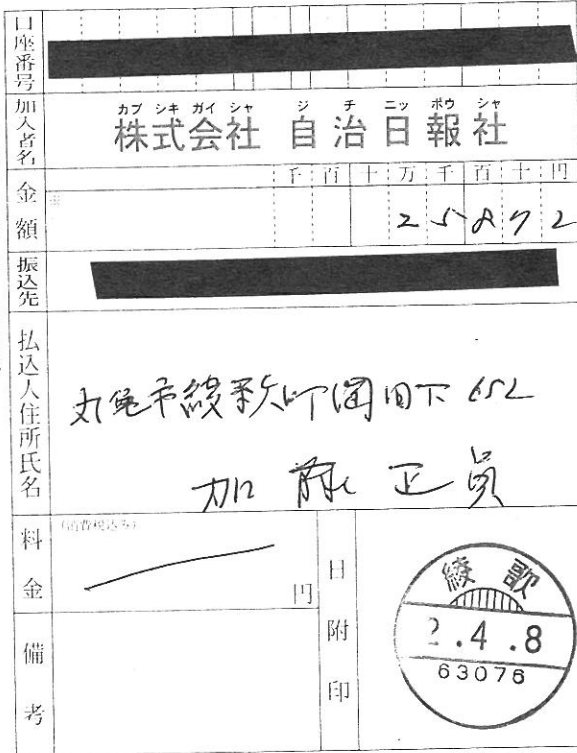 口座番号
加入者名
カブ シキ ガイ シャ ジ チ ニッ ポウ シャ
株式会社 自治日報社
金額
千 百 十 万 千 百 十 円
※
25872
振込先
払込人住所氏名
丸亀市綾歌町岡田下652
加藤正員
料金
(消費税込み)
円
備考
日附印
綾歌
2.4.8
63076